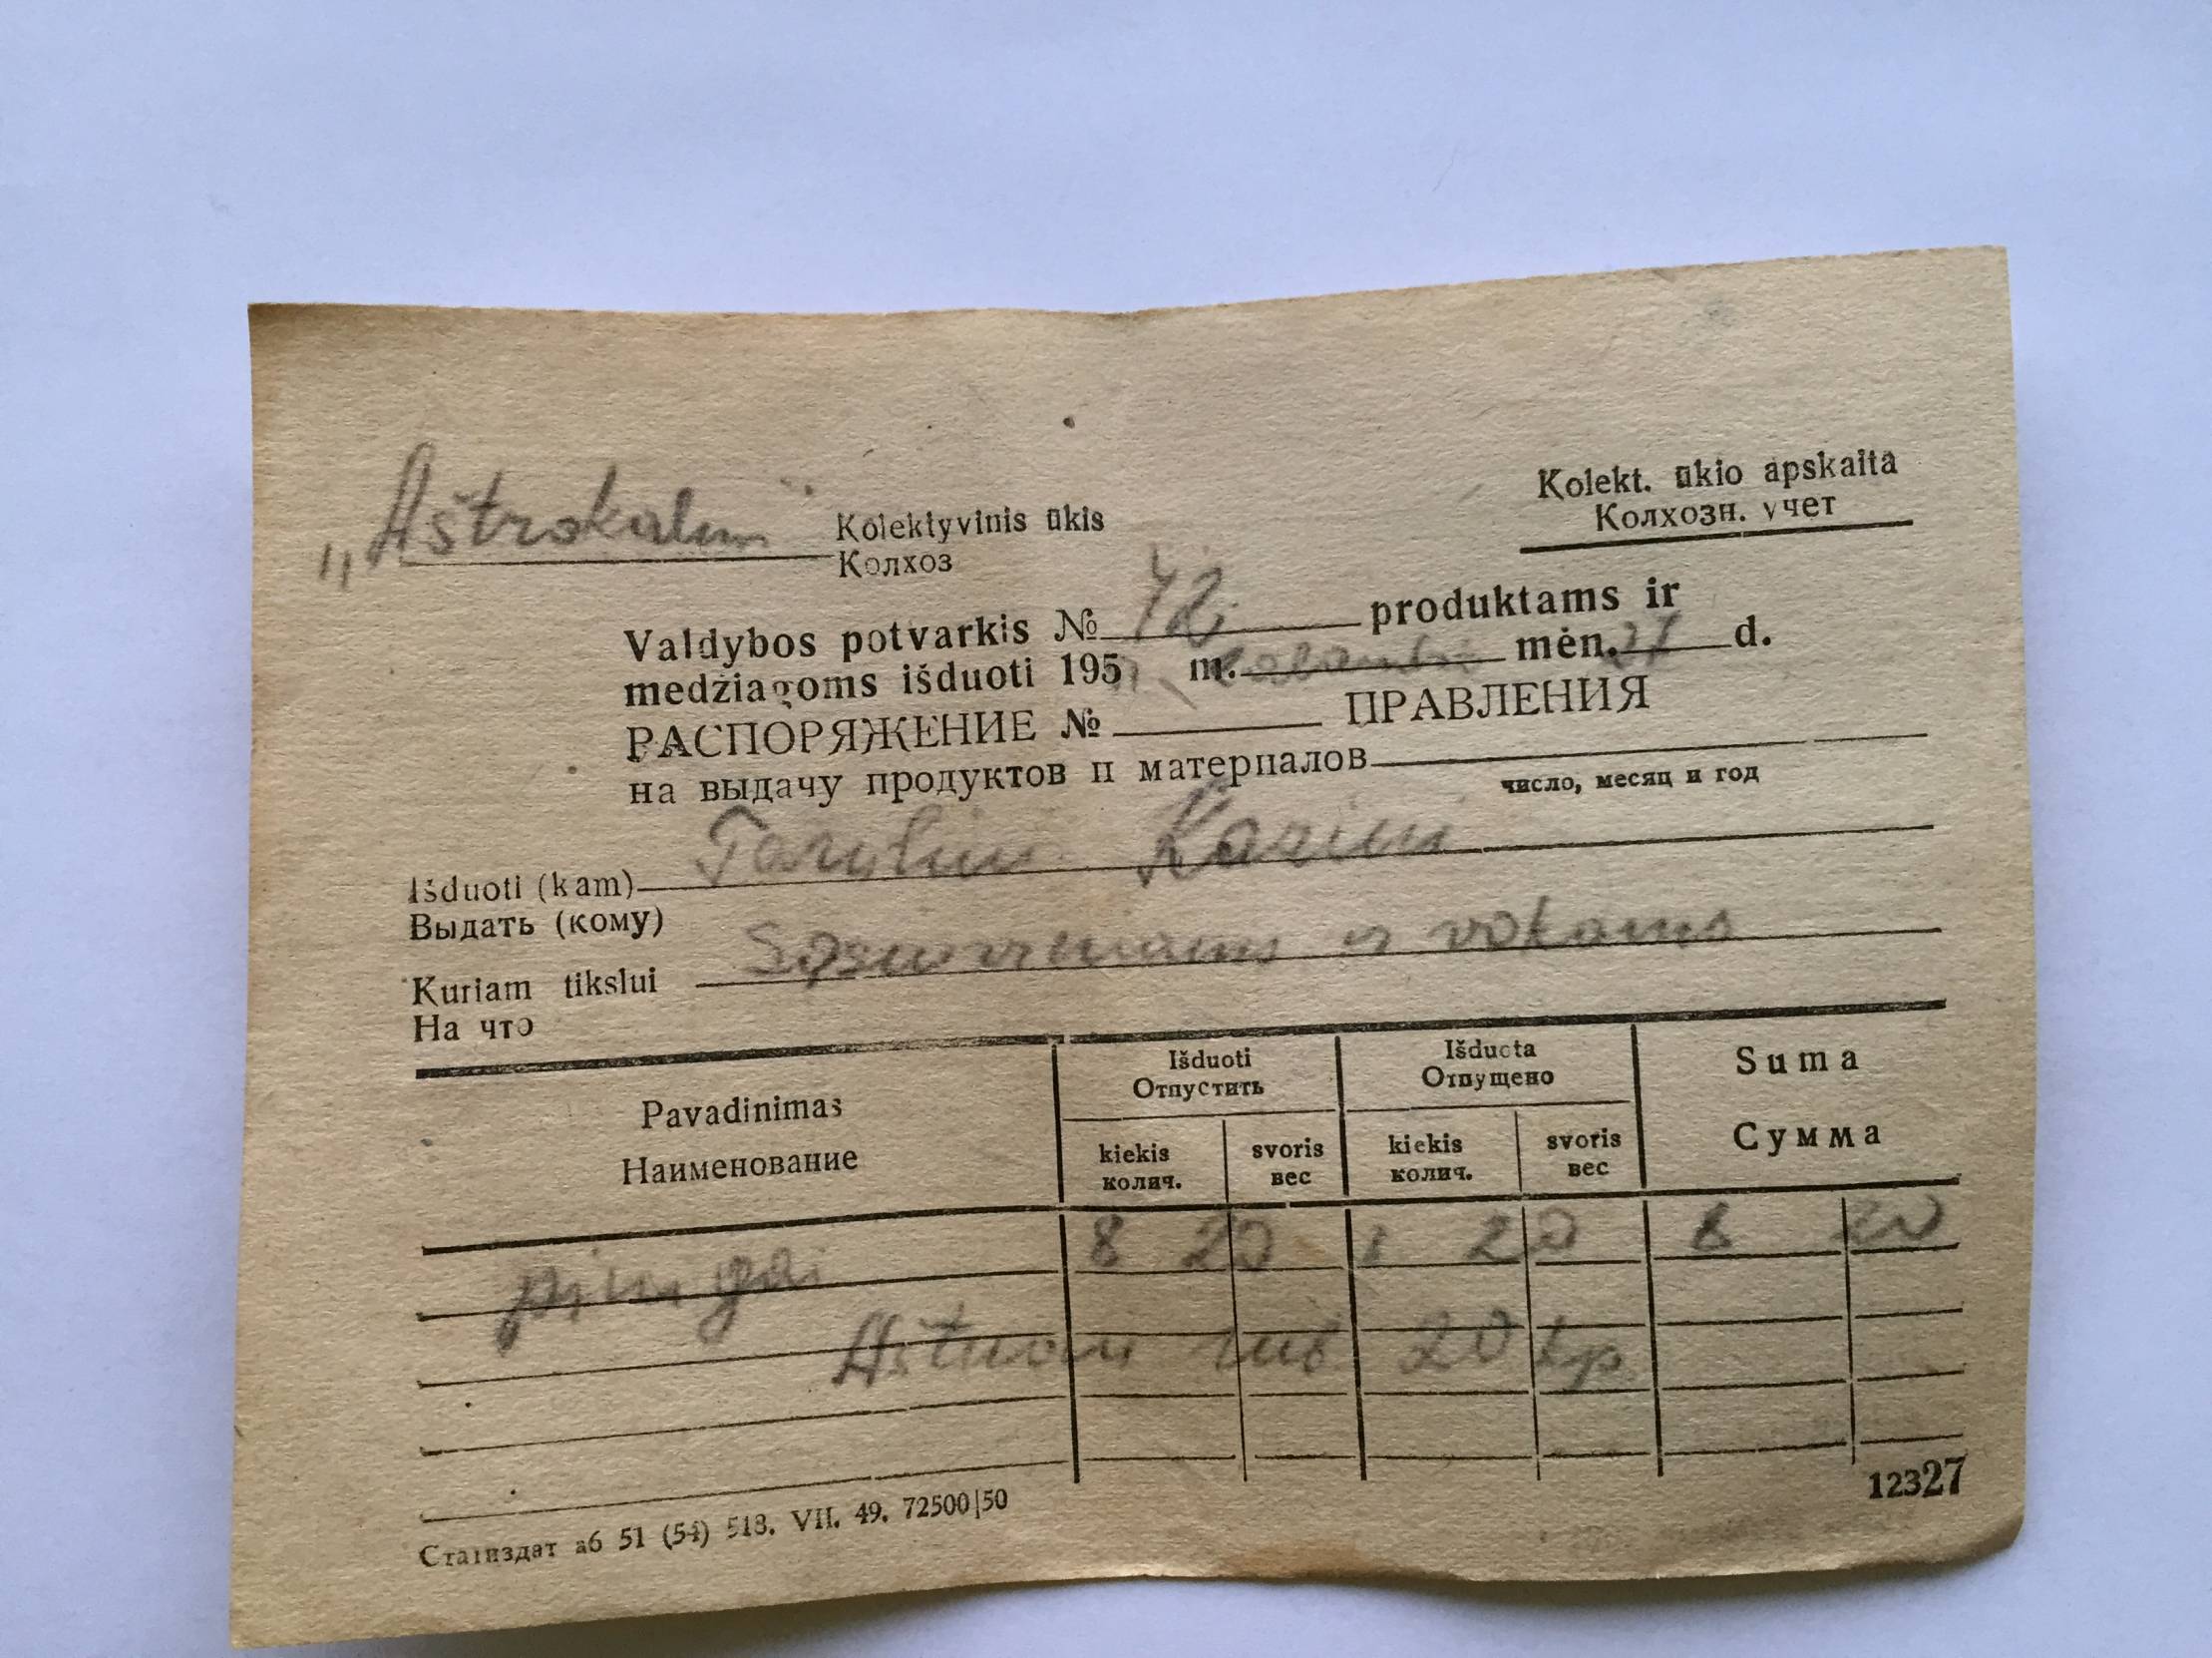 „Aštrokalnio" Kolektyvinis ūkis
Колхоз
Kolekt. ūkio apskaita
Колхозн. учет
Valdybos potvarkis № 42 produktams ir
medžiagoms išduoti 195 m. mėn. 27 d.
РАСПОРЯЖЕНИЕ № ПРАВЛЕНИЯ
на выдачу продуктов и материалов
число, месяц и год
Išduoti (kam)
Выдать (кому)
Kuriam tikslui Sąsiuviniams ir vokams
На что
Pavadinimas
Наименование
Išduoti
Отпустить
kiekis
колич.
svoris
вес
Išduota
Отпущено
kiekis
колич.
svoris
вес
Suma
Сумма
pinigai 8 20 8 20 8 20
Aštuoni rub 20 kp.
Статиздат аб 51 (54) 518. VII. 49. 72500|50
12327